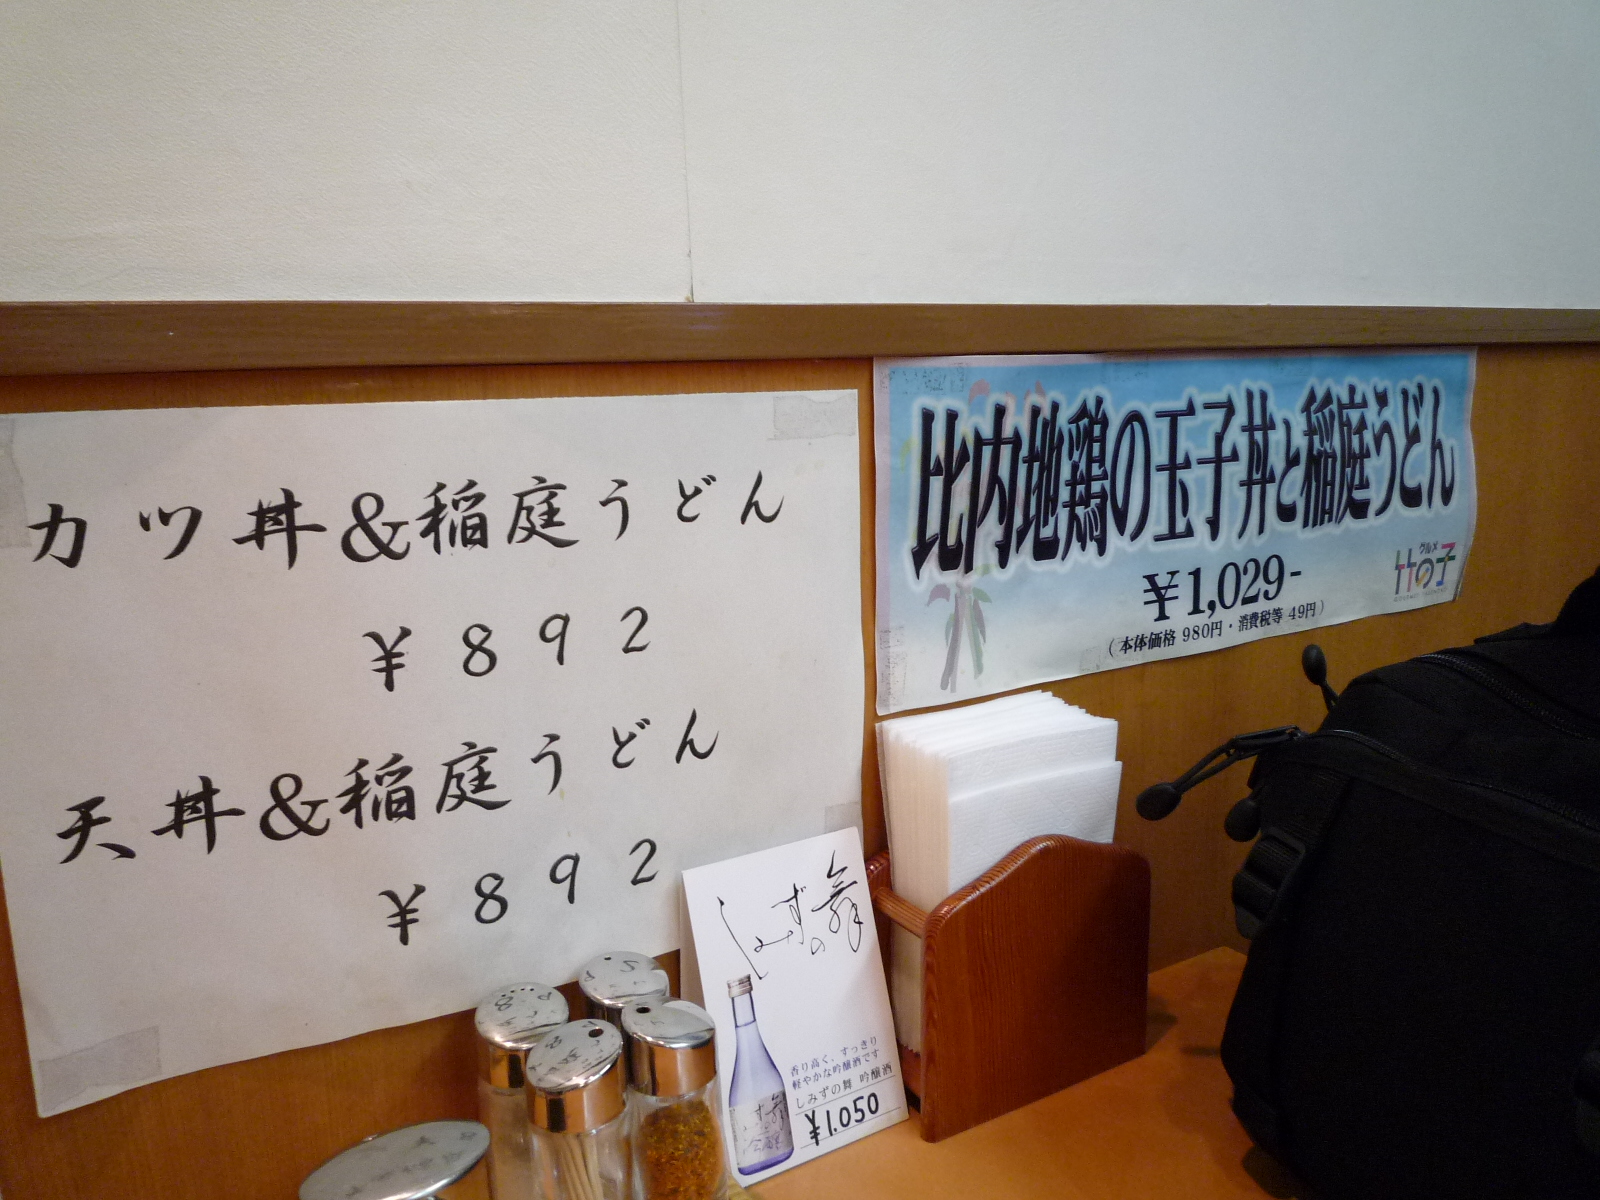 カツ丼&稲庭うどん
¥892
天丼&稲庭うどん
¥892
比内地鶏の玉子丼と稲庭うどん
¥1,029-
(本体価格 980円・消費税等 49円)
グルメ
竹の子
しみずの舞
香り高く、すっきり
軽やかな吟醸酒です
しみずの舞 吟醸酒
¥1,050